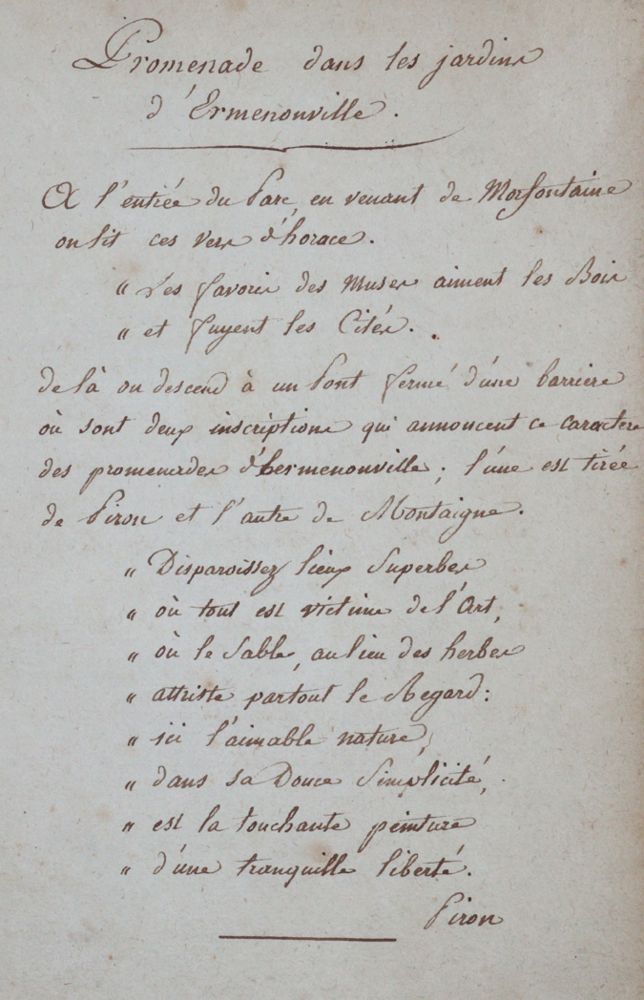 Promenade dans les jardins
d'Ermenonville.
A l'entrée du Parc, en venant de Morfontaine
on lit ces vers d'horace.
" Les favoris des Muses aiment les Bois
" et fuyent les Cités.
de là on descend à un Pont fermé d'une barriere
où sont deux inscriptions qui annoncent ce caractere
des promenades d'hermenonville; l'une est tirée
de Piron et l'autre de Montaigne.
" Disparoissez lieux Superbes
" où tout est victime de l'Art,
" où le Sable, au lieu des herbes
" attriste partout le Regard:
" ici l'aimable nature,
" dans sa Douce Simplicité,
" est la touchante peinture
" d'une tranquille liberté.
Piron